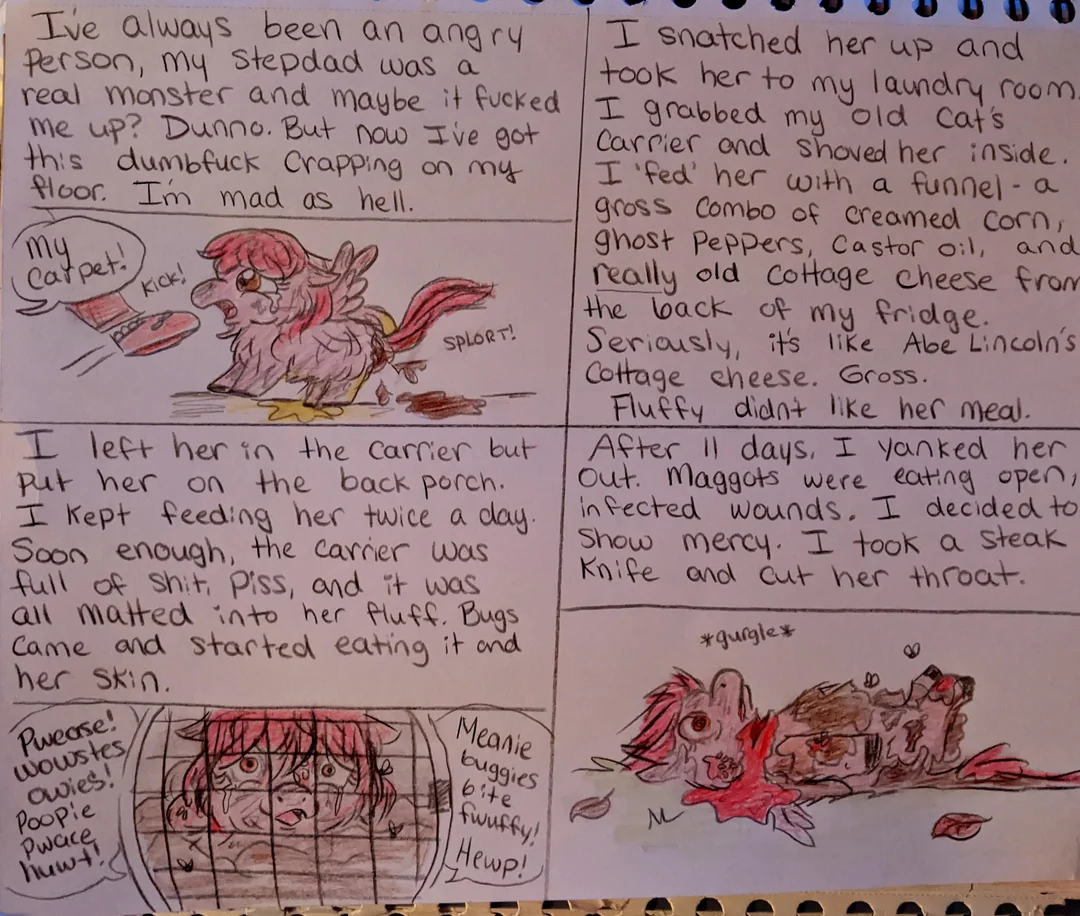 I've always been an angry
person, my stepdad was a
real monster and maybe it fucked
me up? Dunno. But now I've got
this dumbfuck crapping on my
floor. I'm mad as hell.
My
carpet!
KICK!
SPLORT!
I snatched her up and
took her to my laundry room.
I grabbed my old cat's
carrier and shoved her inside.
I 'fed' her with a funnel - a
gross combo of creamed corn,
ghost peppers, castor oil, and
really old cottage cheese from
the back of my fridge.
Seriously, it's like Abe Lincoln's
cottage cheese. Gross.
Fluffy didn't like her meal.
I left her in the carrier but
put her on the back porch.
I kept feeding her twice a day.
Soon enough, the carrier was
full of shit, piss, and it was
all matted into her fluff. Bugs
came and started eating it and
her skin.
Pwease!
wowstes
owies!
Poopie
pwace
huwt!
Meanie
buggies
bite
fwuffy!
Hewp!
After 11 days, I yanked her
out. Maggots were eating open,
infected wounds. I decided to
show mercy. I took a steak
knife and cut her throat.
*gurgle*